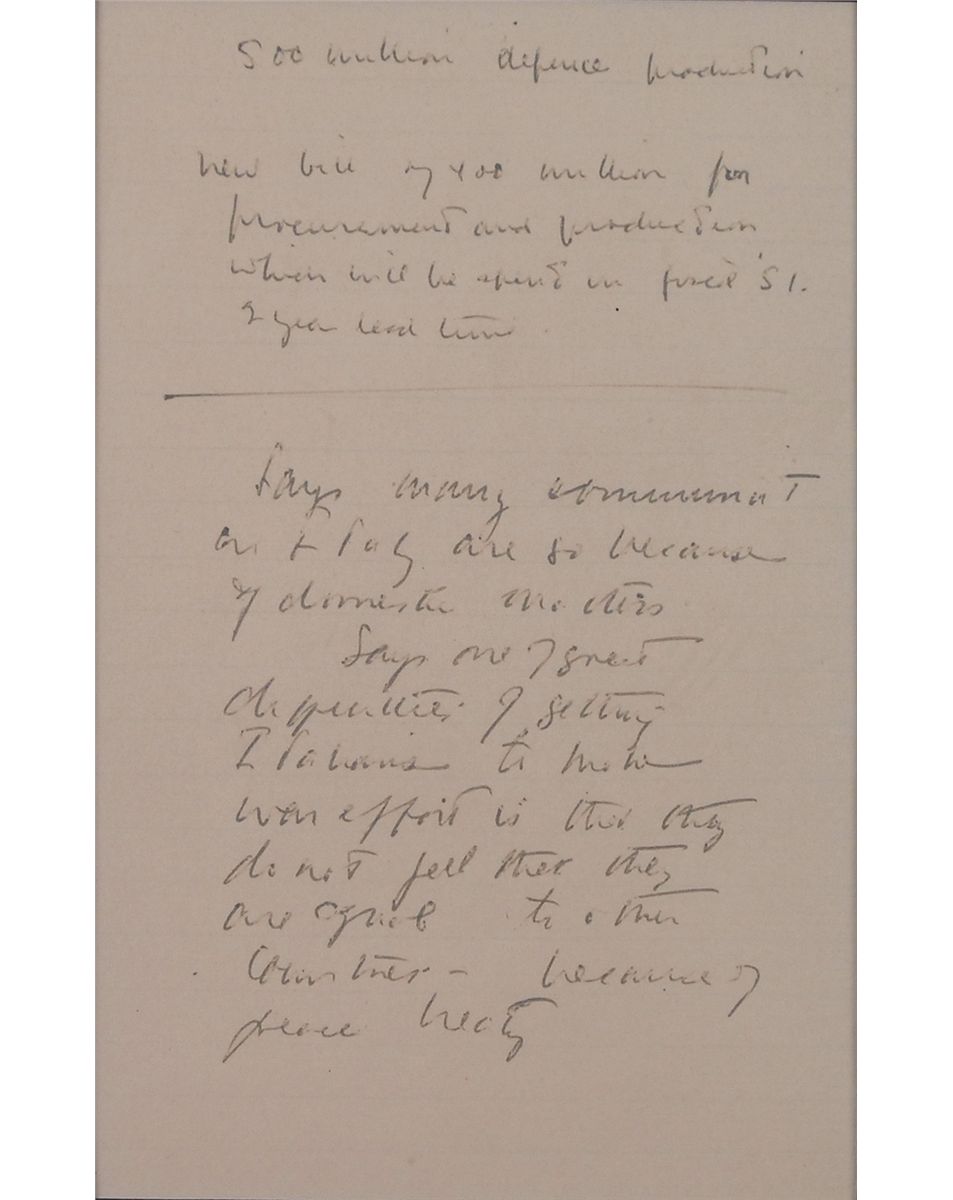 500 million defence production
new bill of 400 million for
procurement and production
which will be spent in fiscal '51.
2 year lead time
Says many communist
in Italy are so because
of domestic matters
Says one of great
difficulties of getting
Italians to make
war effort is that they
do not feel that they
are equal to other
Countries - because of
peace treaty